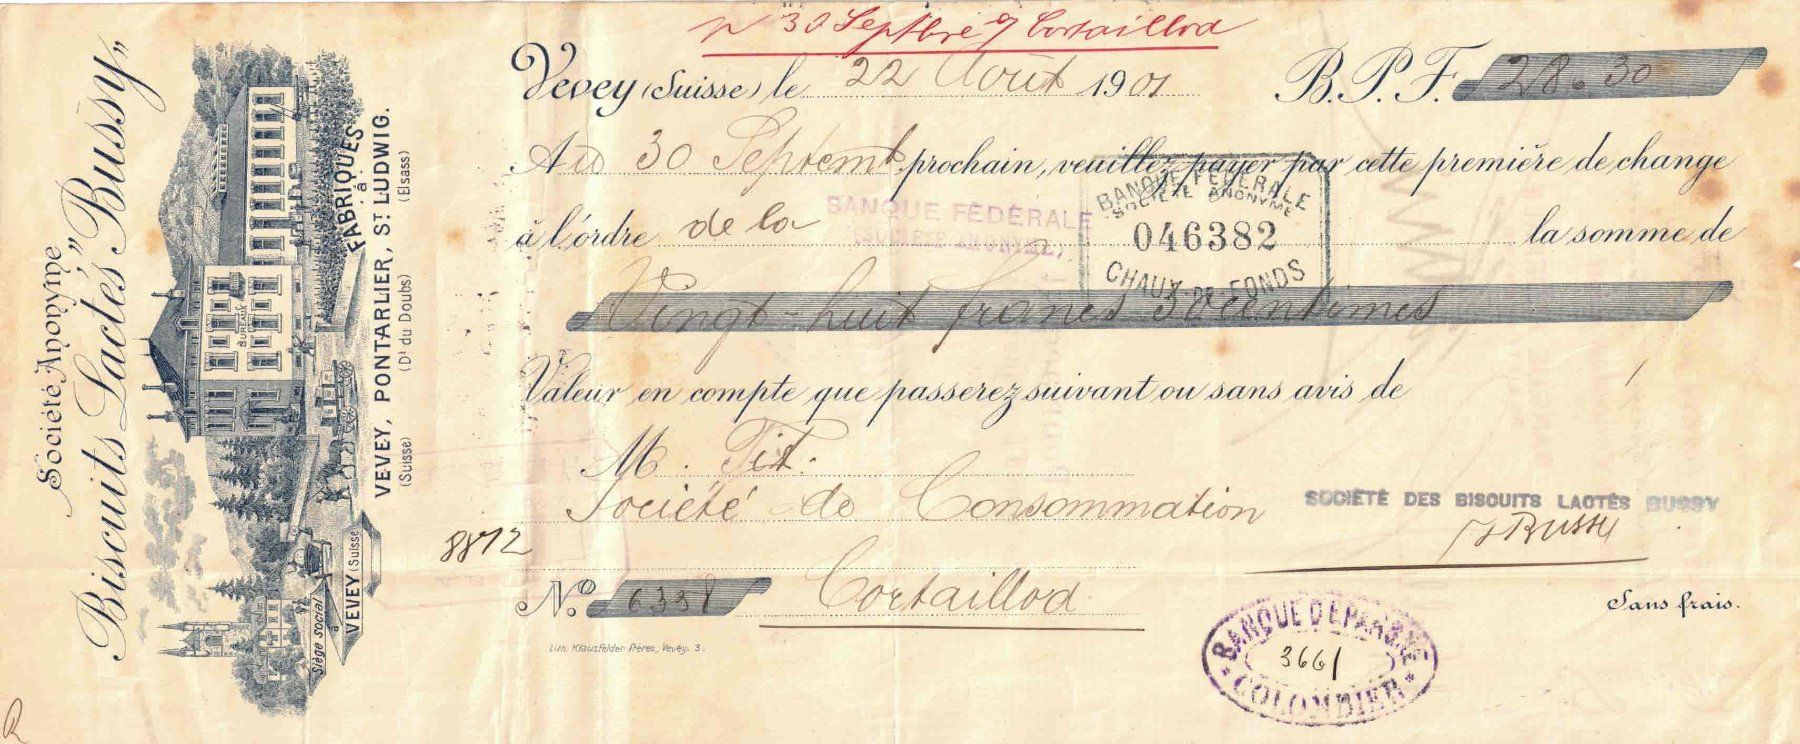 Société Anonyme
Biscuits Lactés "Bussy"
FABRIQUES
à
VEVEY, PONTARLIER, ST LUDWIG.
(Suisse) (Dt du Doubs) (Elsass)
BUREAUX
Siège social
à
VEVEY (Suisse)
30 Septbre s/ Cortaillod
Vevey (Suisse) le 22 Août 1901 B.P.F. 28.30
Au 30 Septemb prochain, veuillez payer par cette première de change
à l'ordre de la BANQUE FÉDÉRALE
(SOCIÉTÉ ANONYME)
la somme de
BANQUE FÉDÉRALE
SOCIÉTÉ ANONYME
046382
CHAUX-DE-FONDS
Vingt-huit francs 30 centimes
Valeur en compte que passerez suivant ou sans avis de
M.
Société de Consommation
SOCIÉTÉ DES BISCUITS LACTÉS BUSSY
Bussy
8812
No. 6338 Cortaillod
Sans frais.
BANQUE D'EPARGNE
3661
COLOMBIER
Lith. Klausfelder Frères, Vevey. 3.
R